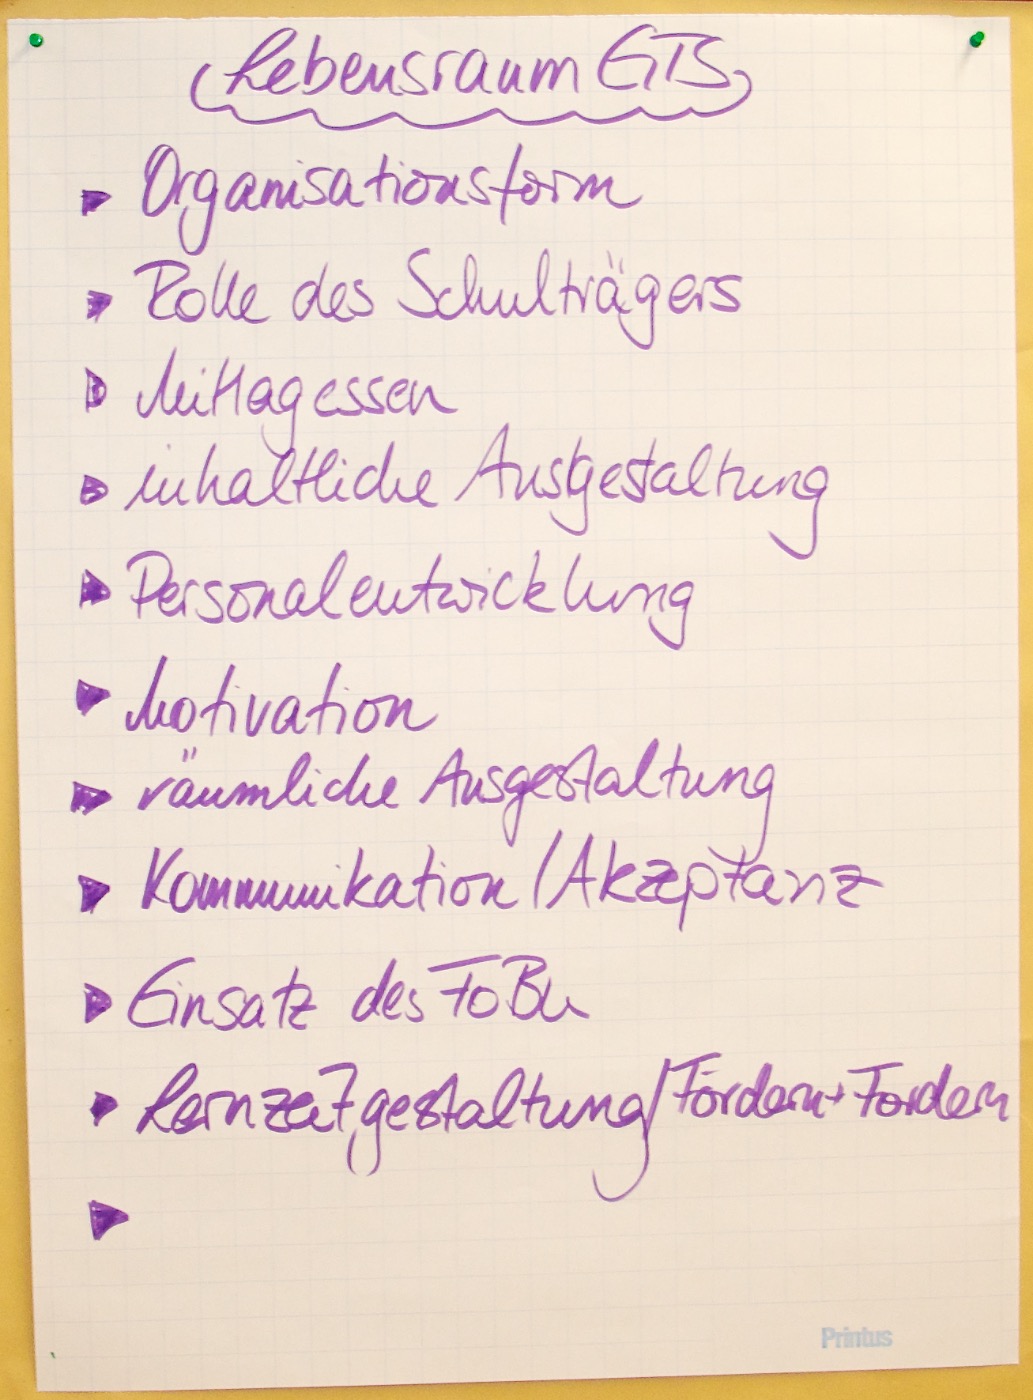 Lebensraum GTS
Organisationsform
Rolle des Schulträgers
Mittagessen
inhaltliche Ausgestaltung
Personalentwicklung
Motivation
räumliche Ausgestaltung
Kommunikation/Akzeptanz
Einsatz des FoBu
Lernzeitgestaltung/Fördern+Fordern
Printus